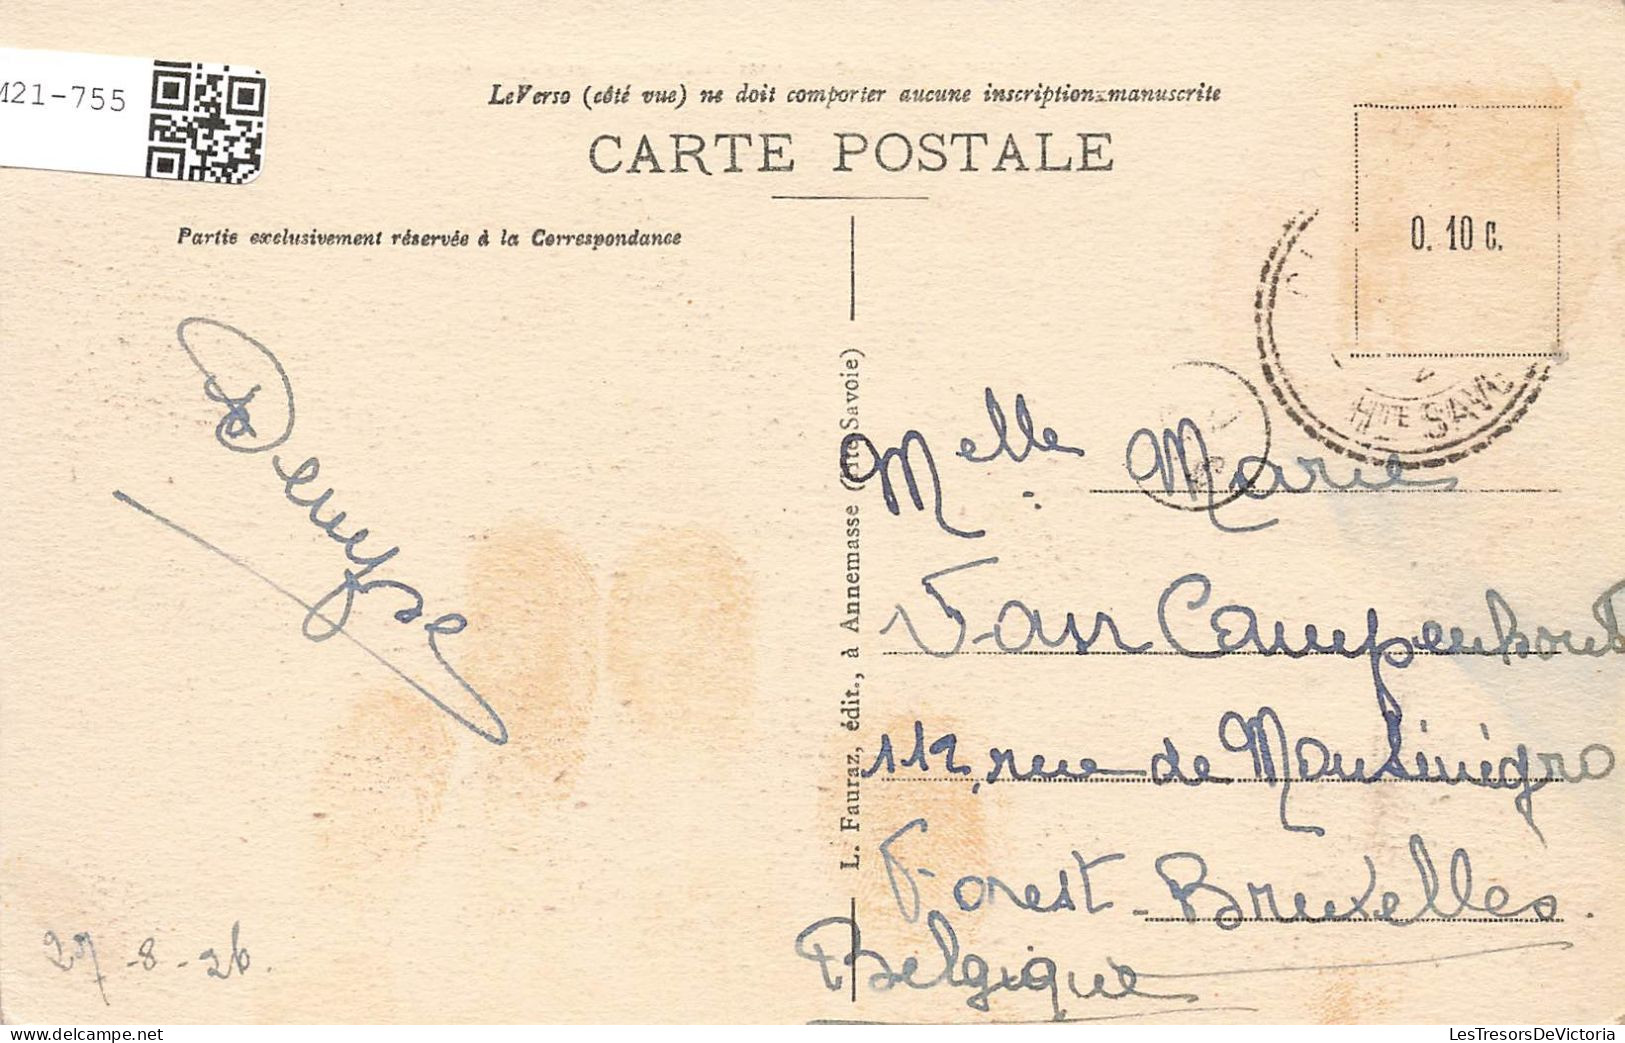 M21-755
Le Verso (côté vue) ne doit comporter aucune inscription manuscrite
CARTE POSTALE
Partie exclusivement réservée à la Correspondance
0. 10 c.
HTE SAVO
L. Fauraz, édit., à Annemasse (Hte-Savoie)
Denyse
Melle Marie
Van Campenhout
112, rue de Monténégro
Forest-Bruxelles.
Belgique
27-8-26.
LesTresorsDeVictoria